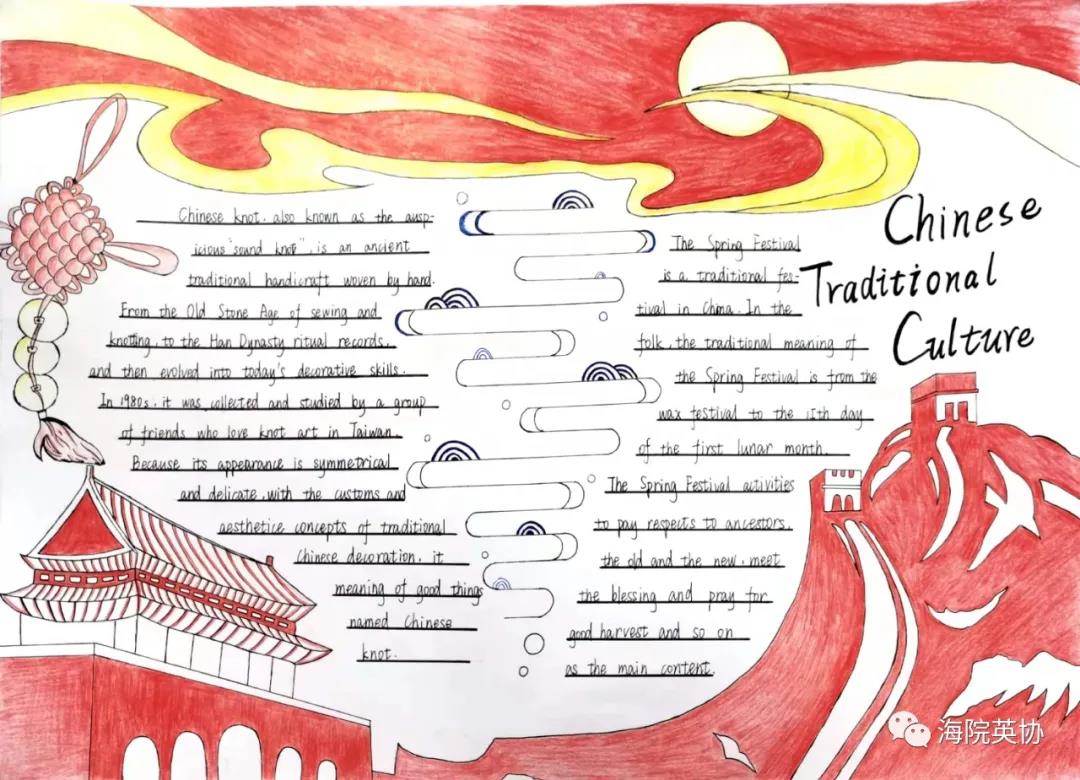 Chinese
Traditional
Culture
Chinese knot, also known as the ausp-
icious "sound knot", is an ancient
traditional handicraft woven by hand.
From the Old Stone Age of sewing and
knotting, to the Han Dynasty ritual records,
and then evolved into today's decorative skills.
In 1980s, it was collected and studied by a group
of friends who love knot art in Taiwan.
Because its appearance is symmetrical
and delicate, with the customs and
aesthetice concepts of traditional
Chinese decoration, it
meaning of good things
named Chinese
knot.
The Spring Festival
is a traditional fes-
tival in China. In the
folk, the traditional meaning of
the Spring Festival is from the
wax festival to the 15th day
of the first lunar month.
The Spring Festival activities
to pay respects to ancestors,
the old and the new, meet
the blessing and pray for
good harvest and so on
as the main content.
海院英协